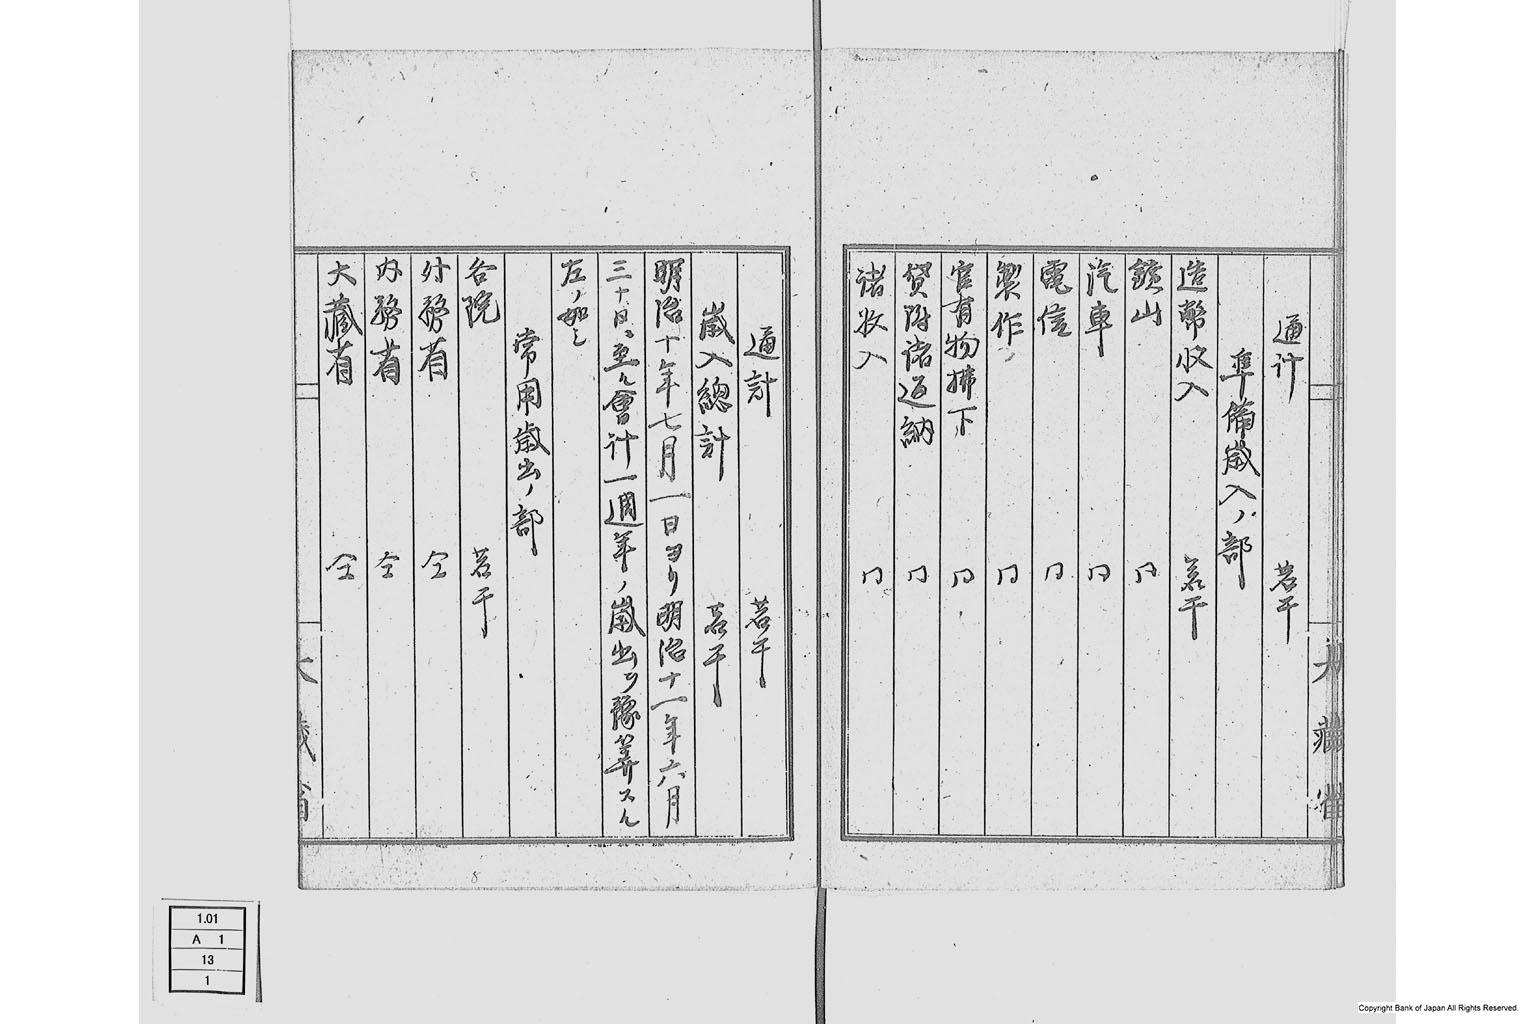 通計 若干
準備歳入ノ部
造幣收入 若干
鑛山 同
汽車 同
電信 同
製作 同
官有物拂下 同
貸附諸返納 同
諸收入 同
通計 若干
歳入總計 若干
明治十年七月一日ヨリ明治十一年六月
三十日ニ至ル會計一週年ノ歳出ヲ豫算スル
左ノ如シ
常用歳出ノ部
各院 若干
外務省 仝
内務省 仝
大藏省 仝
大藏省
大藏省
8
1.01
A 1
13
1
Copyright Bank of Japan All Rights Reserved.